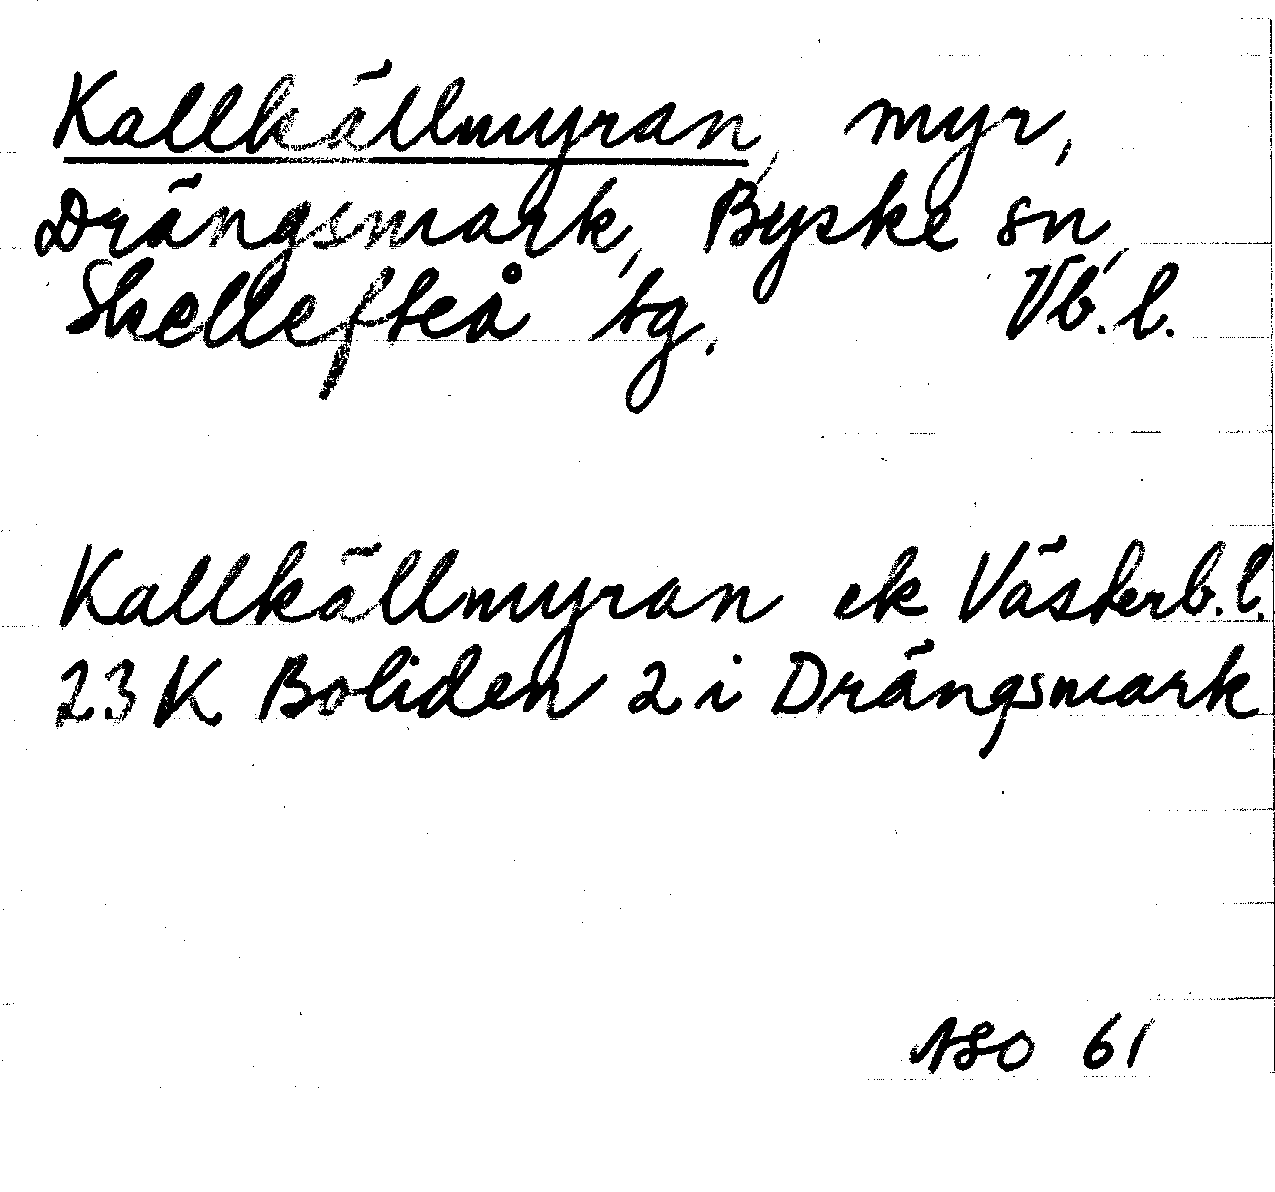 Kallkällmyran, myr,
Drängsmark, Byske sn,
Skellefteå tg. Vb.l.
Kallkällmyran ek Västerb.l.
23K Boliden 2 i Drängsmark
ASO 61